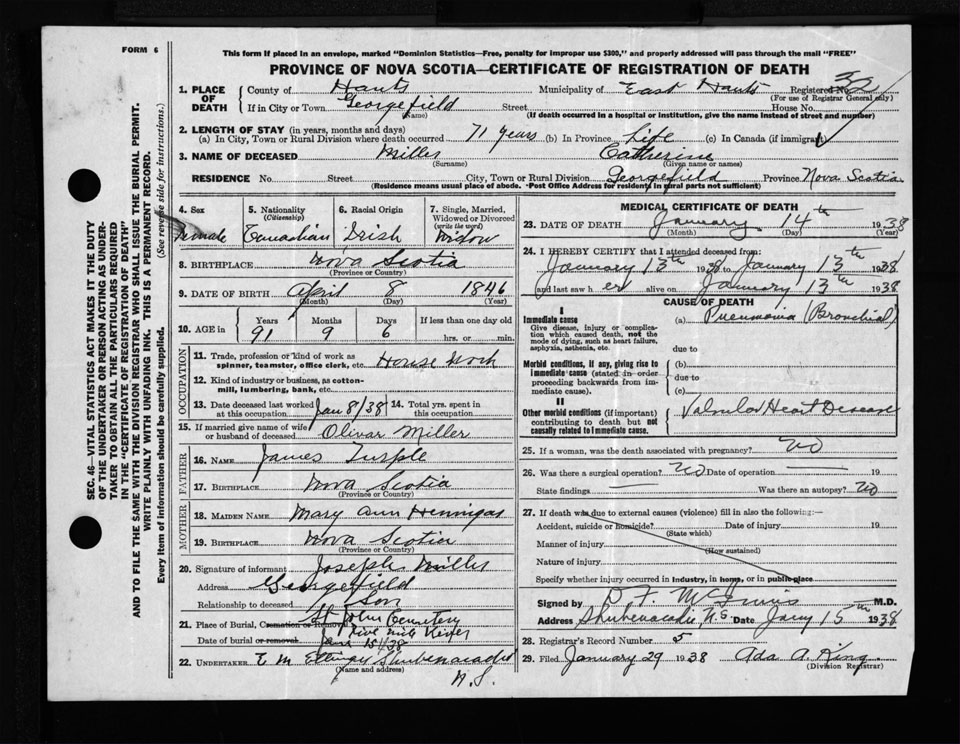 FORM 6
This form if placed in an envelope, marked "Dominion Statistics—Free, penalty for improper use $300," and properly addressed will pass through the mail "FREE"
PROVINCE OF NOVA SCOTIA—CERTIFICATE OF REGISTRATION OF DEATH
SEC. 46—VITAL STATISTICS ACT MAKES IT THE DUTY
OF THE UNDERTAKER OR PERSON ACTING AS UNDER-
TAKER TO OBTAIN ALL THE PARTICULARS REQUIRED
IN THE "CERTIFICATE OF REGISTRATION OF DEATH"
AND TO FILE THE SAME WITH THE DIVISION REGISTRAR WHO SHALL ISSUE THE BURIAL PERMIT.
WRITE PLAINLY WITH UNFADING INK. THIS IS A PERMANENT RECORD.
Every item of Information should be carefully supplied. (See reverse side for instructions.)
1. PLACE OF DEATH County of Hants Municipality of East Hants Registered No.
(For use of Registrar General only)
If in City or Town Georgefield Street House No.
(Name) (If death occurred in a hospital or institution, give the name instead of street and number)
2. LENGTH OF STAY (in years, months and days)
(a) In City, Town or Rural Division where death occurred 71 years (b) In Province Life (c) In Canada (if immigrant)
3. NAME OF DECEASED Miller Catherine
(Surname) (Given name or names)
RESIDENCE No. Street City, Town or Rural Division Georgefield Province Nova Scotia
(Residence means usual place of abode. *Post Office Address for residents in rural parts not sufficient)
4. Sex Female
5. Nationality (Citizenship) Canadian
6. Racial Origin Irish
7. Single, Married, Widowed or Divorced (write the word) Widow
8. BIRTHPLACE Nova Scotia
(Province or Country)
9. DATE OF BIRTH April 8 1846
(Month) (Day) (Year)
10. AGE in Years 91 Months 9 Days 6 If less than one day old hrs. or min.
OCCUPATION
11. Trade, profession or kind of work as spinner, teamster, office clerk, etc. House Work
12. Kind of industry or business, as cotton-mill, lumbering, bank, etc.
13. Date deceased last worked at this occupation Jan 8/38 14. Total yrs. spent in this occupation
15. If married give name of wife or husband of deceased Olivar Miller
FATHER
16. NAME James Turple
17. BIRTHPLACE Nova Scotia
(Province or Country)
MOTHER
18. MAIDEN NAME Mary Ann Hennigar
19. BIRTHPLACE Nova Scotia
(Province or Country)
20. Signature of informant Joseph Miller
Address Georgefield
Relationship to deceased Son
21. Place of Burial, Cremation or Removal St John Cemetery
Five Mile River
Date of burial or removal Jan 15/38
22. UNDERTAKER E M Ettinger Shubenacadie
(Name and address) N.S.
MEDICAL CERTIFICATE OF DEATH
23. DATE OF DEATH January 14th 1938
(Month) (Day) (Year)
24. I HEREBY CERTIFY that I attended deceased from:
January 13th 1938 to January 13th 1938
and last saw her alive on January 13th 1938
CAUSE OF DEATH
I
Immediate cause (a) Pneumonia (Bronchial)
Give disease, injury or complication which caused death, not the mode of dying, such as heart failure, asphyxia, asthenia, etc.
due to
Morbid conditions, if any, giving rise to immediate cause (stated in order proceeding backwards from immediate cause).
(b)
due to
(c)
II
Other morbid conditions (if important) contributing to death but not causally related to Immediate cause. Valvular Heart Disease
25. If a woman, was the death associated with pregnancy? No
26. Was there a surgical operation? No Date of operation 19
State findings Was there an autopsy? No
27. If death was due to external causes (violence) fill in also the following:—
Accident, suicide or homicide? Date of injury 19
(State which)
Manner of injury
(How sustained)
Nature of injury
Specify whether injury occurred in industry, in home, or in public place
Signed by D. F. M.D.
Address Shubenacadie, N.S. Date Jany 15th 1938
28. Registrar's Record Number 5
29. Filed January 29 1938 Ada A. King
(Division Registrar)